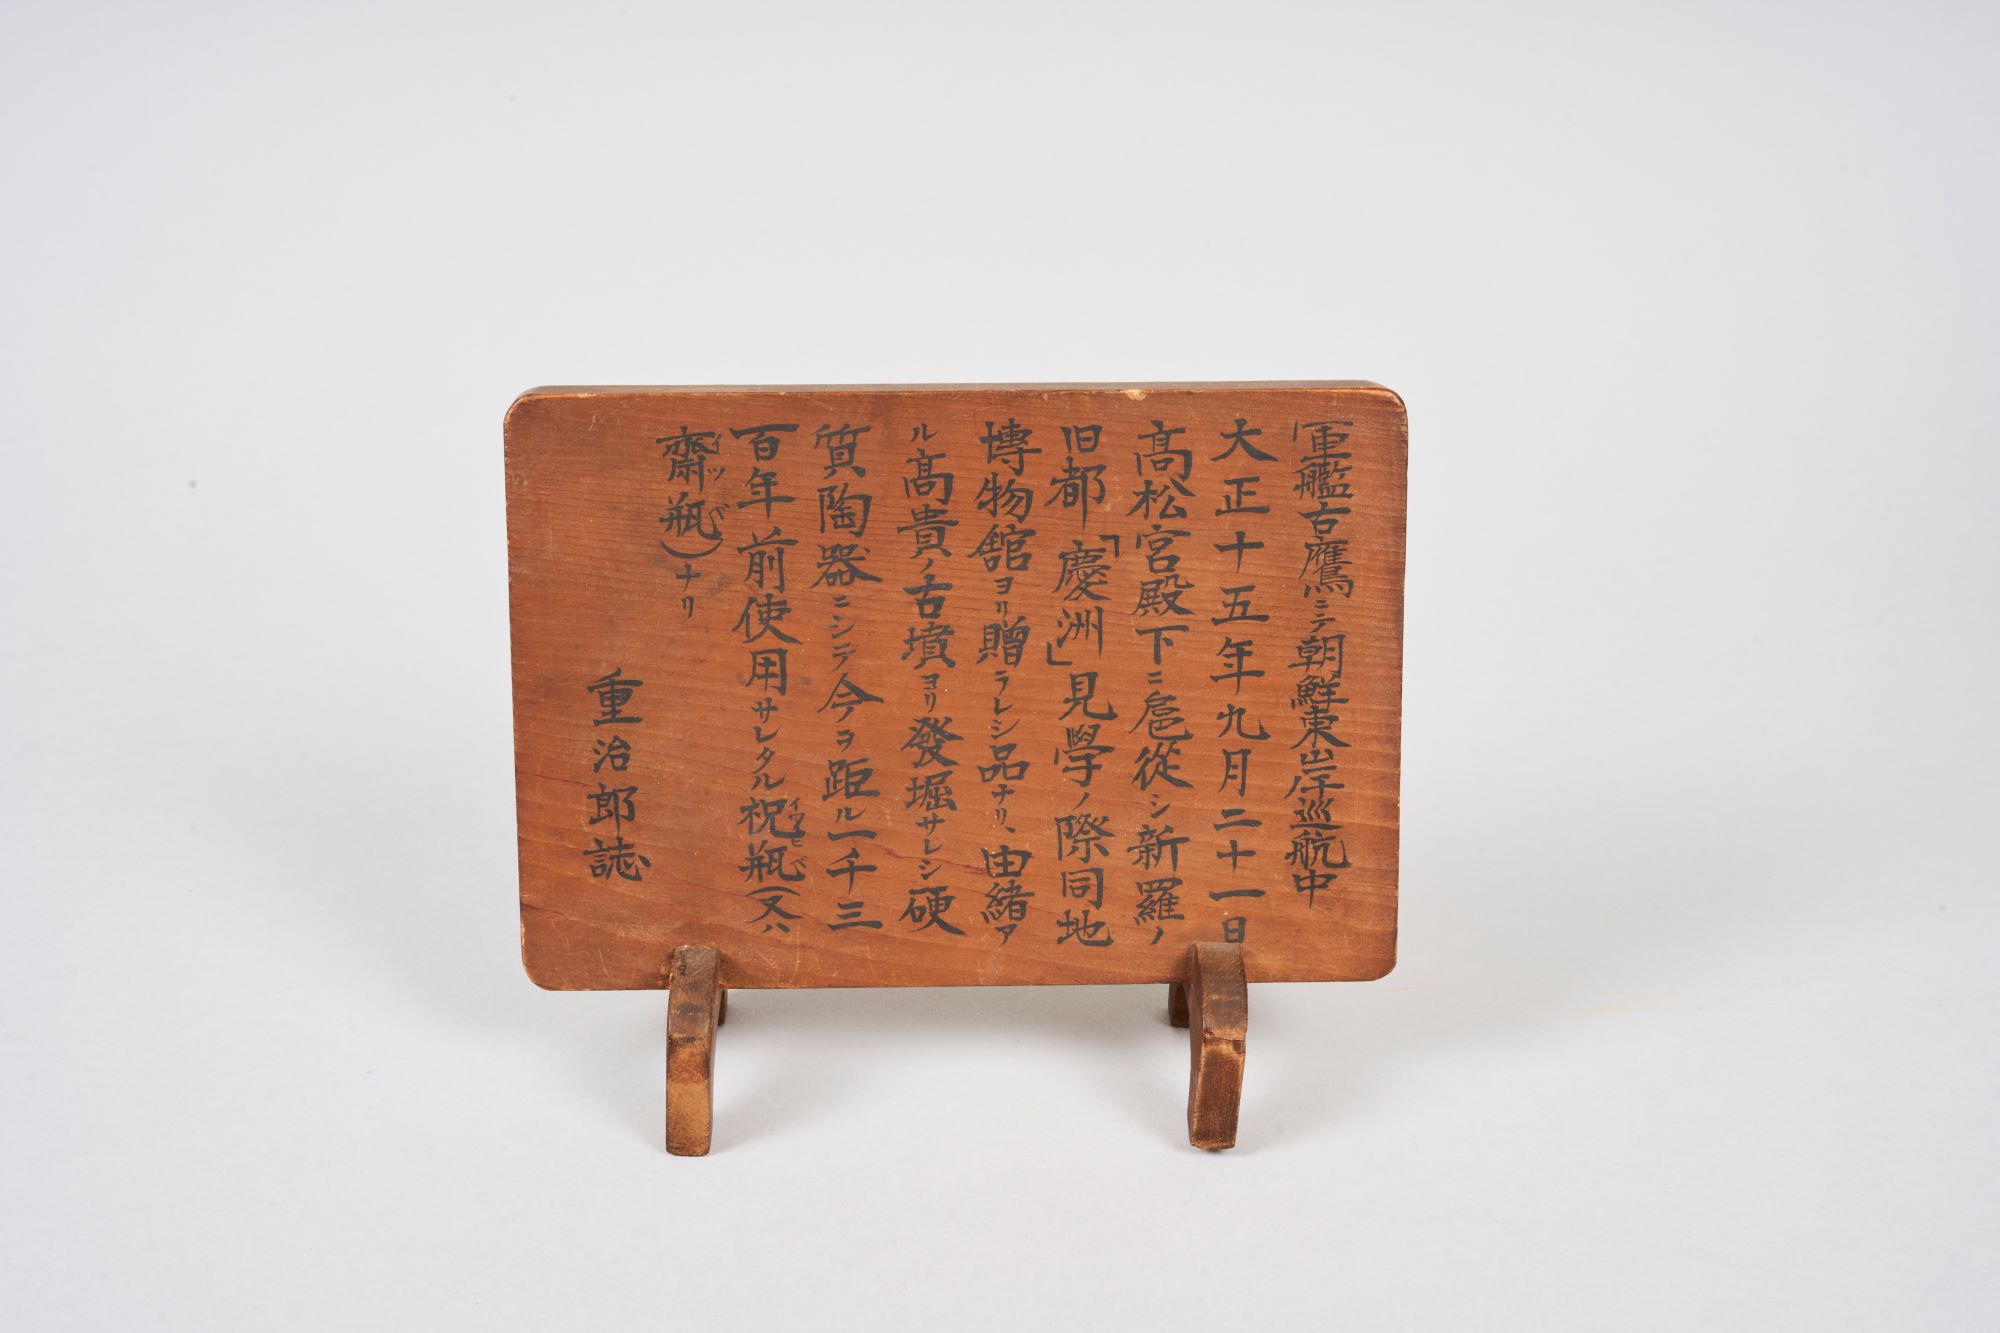 軍艦古鷹ニテ朝鮮東岸巡航中
大正十五年九月二十一日
高松宮殿下ニ扈從シ新羅ノ
旧都「慶洲」見學ノ際同地
博物舘ヨリ贈ラレシ品ナリ、由緒ア
ル高貴ノ古墳ヨリ發堀サレシ硬
質陶器ニシテ今ヲ距ル一千三
百年前使用サレタル祝瓶(又ハ
齋瓶)ナリ
重治郎誌